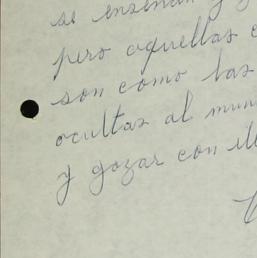 se enseñan y
pero aquellas
son como las
ocultas al mun
y gozar con